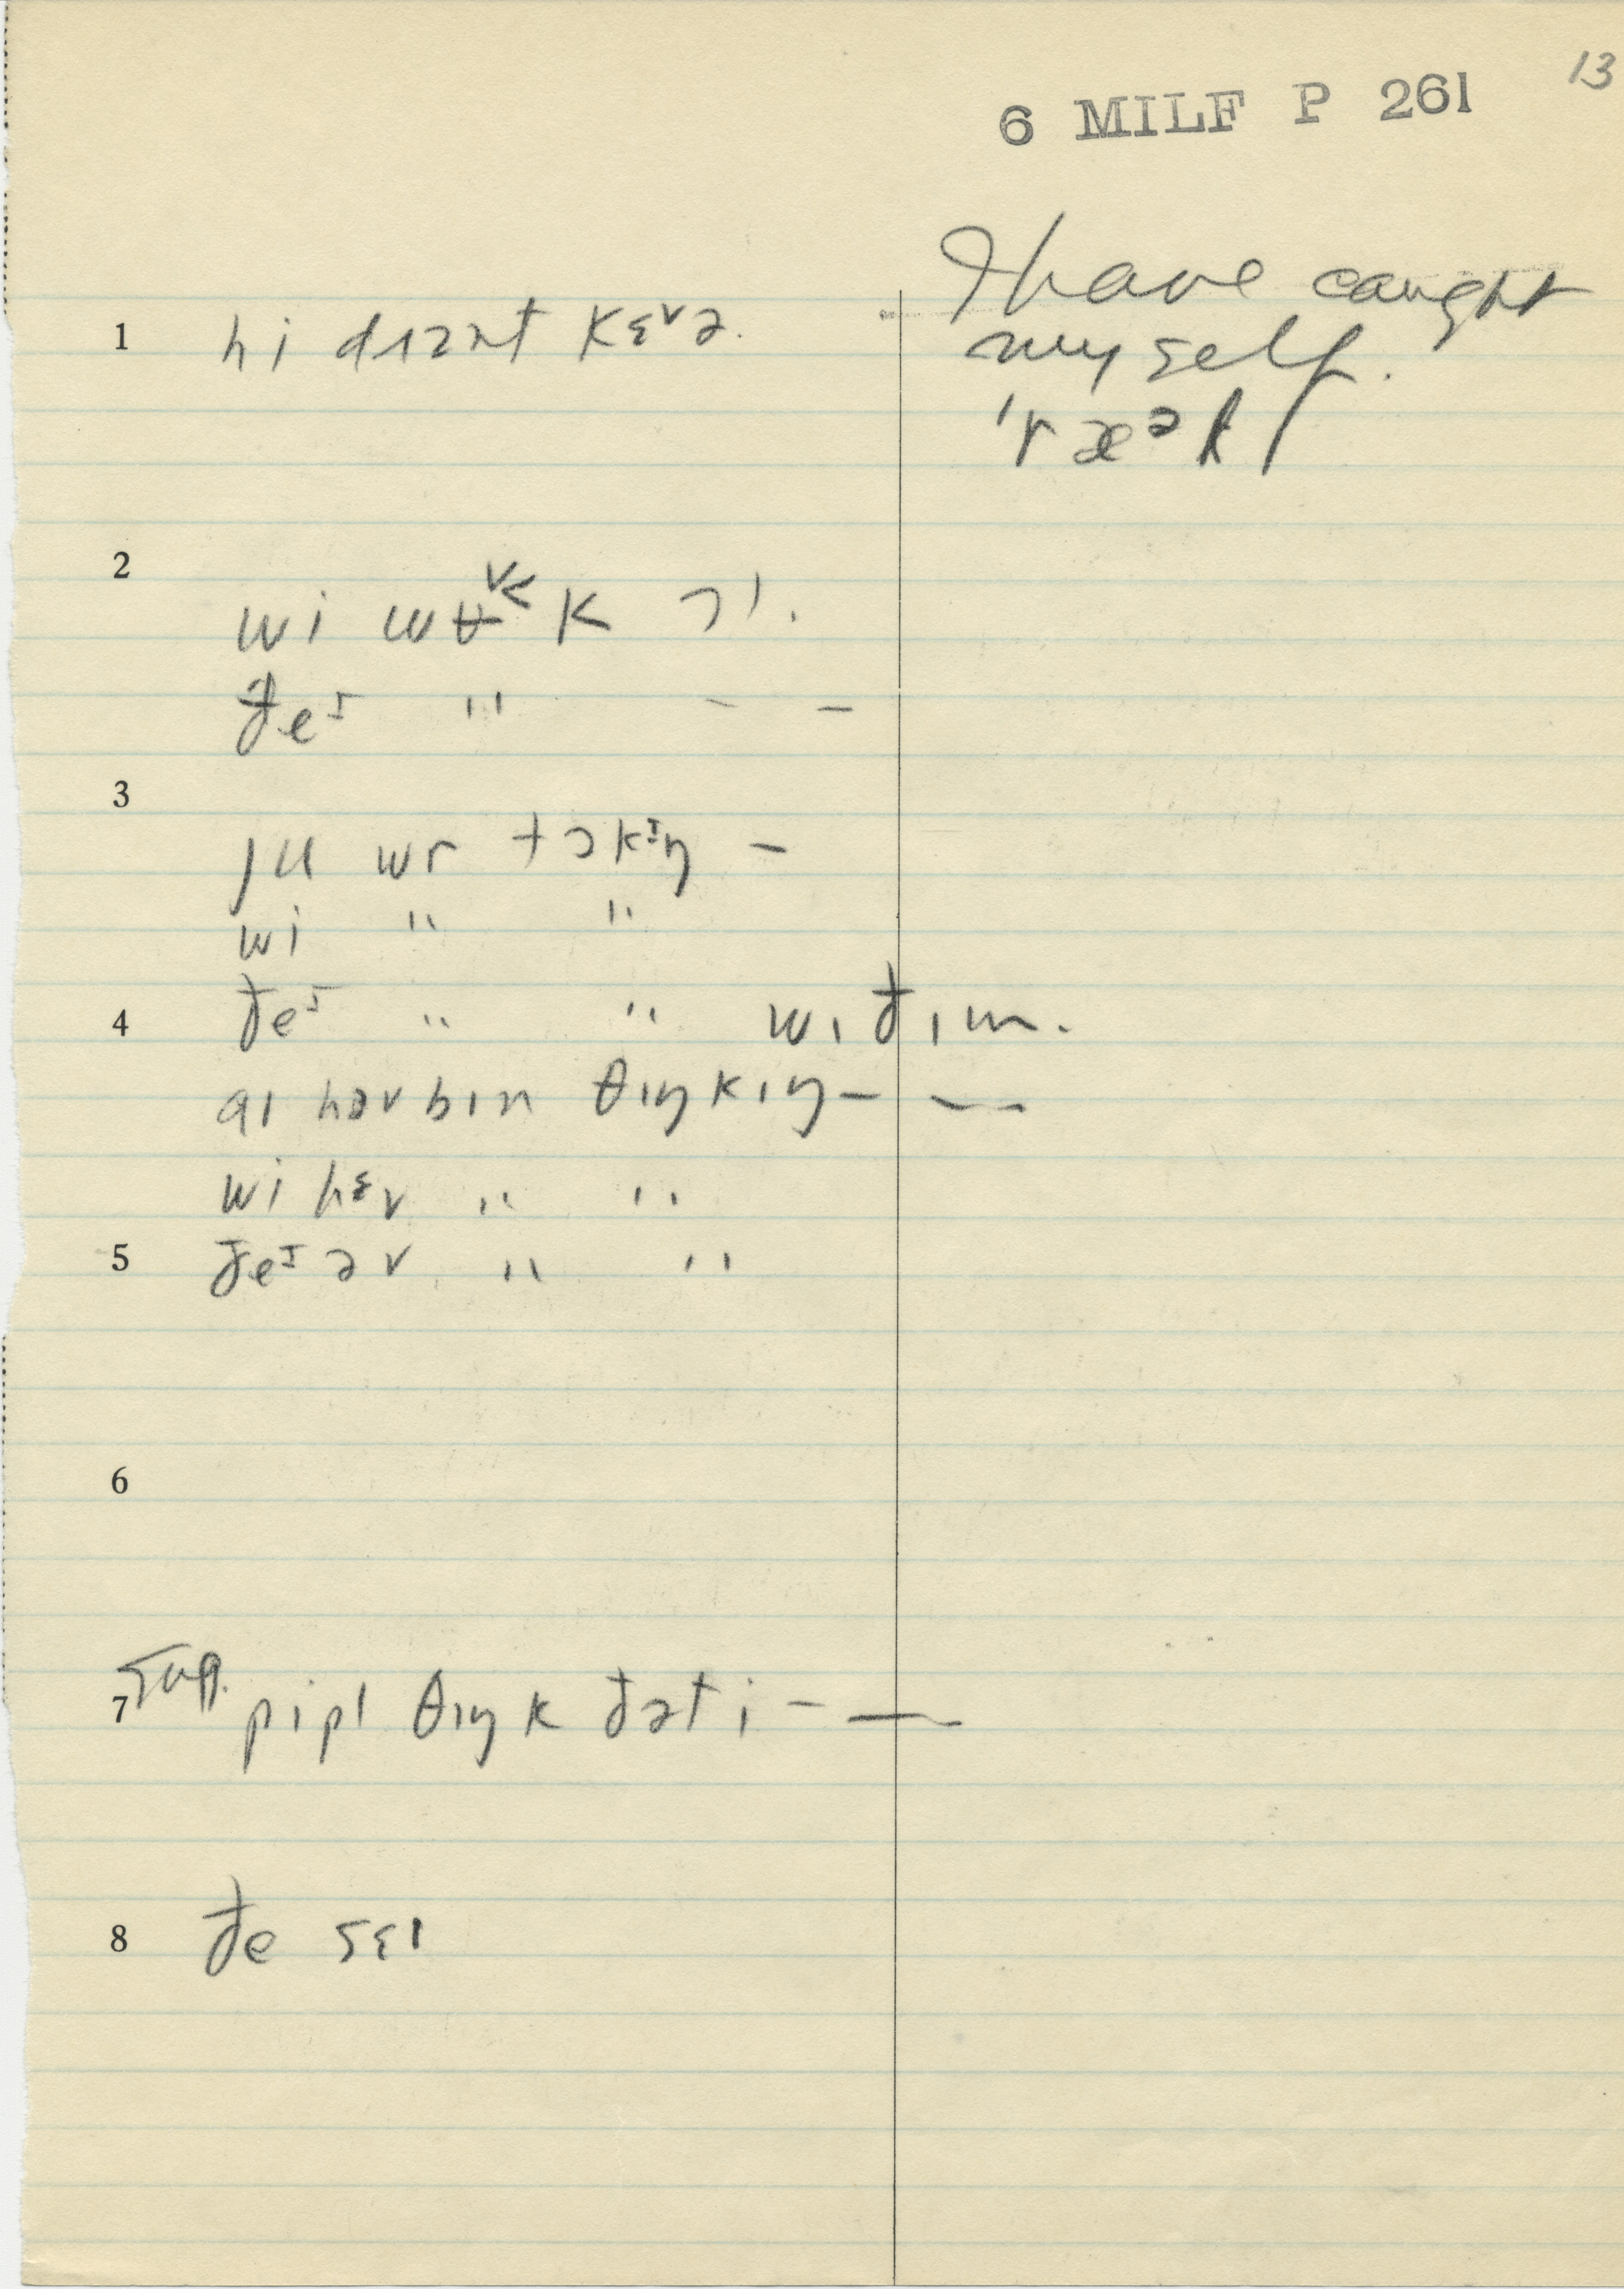 13
6 MILF P 261
1 hi dɪznt kɛvə.
I have caught
myself.
ˈræᵊk
2
wi wɵ˅˂k ɔɪ.
ðeᶦ " – –
3
ju wr tɔkᶦŋ –
wi " "
4 ðeᶦ " " wɪðɪm.
aɪ həv bɪn θɪŋkɪŋ – —
wi hɛv " "
5 ðeᶦ əv " "
6
7 sup. pipl θɪŋk ðət i – —
8 ðe sɛɪ